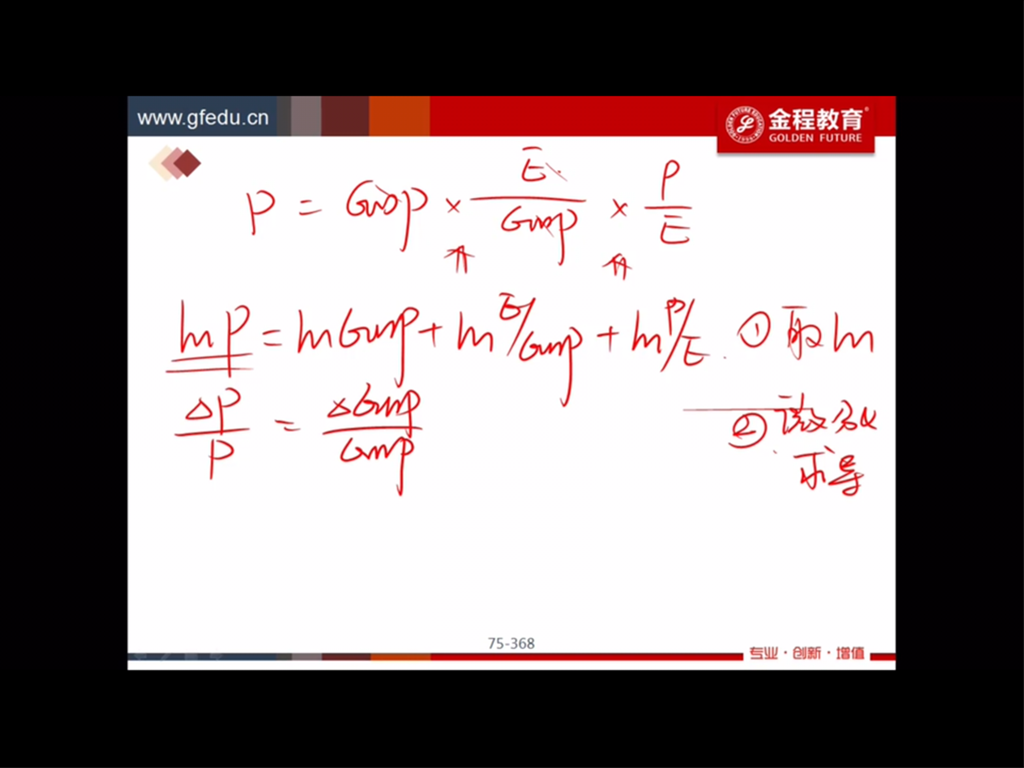 www.gfedu.cn
金程教育
GOLDEN FUTURE
P = GDP × E/GDP × P/E
ln P = ln GDP + ln E/GDP + ln P/E ① 取 ln
ΔP/P = ΔGDP/GDP ② 微分
求导
75-368
专业·创新·增值